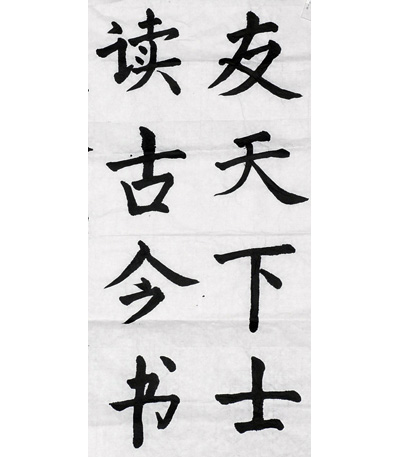 友天下士
读古今书